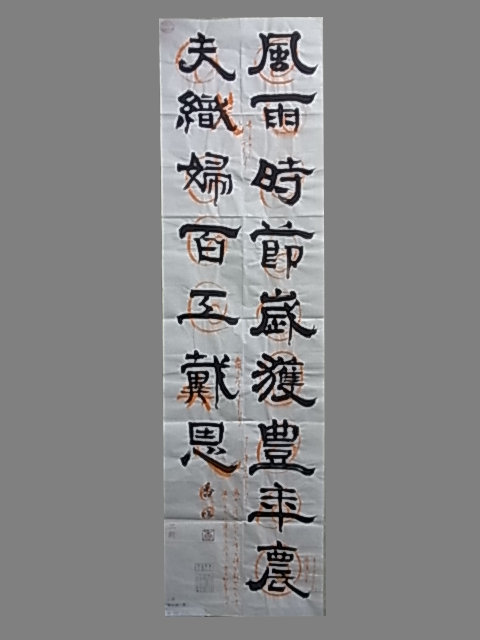 風雨時節歳獲豊年農
夫織婦百工戴恩